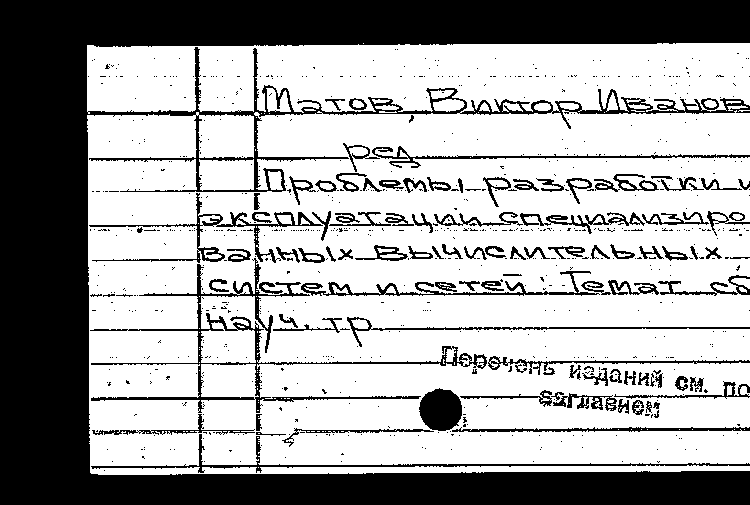 Матов, Виктор Иванов
ред
Проблемы разработки и
эксплуатации специализиро
ванных вычислительных
систем и сетей: Темат сб
науч. тр
Перечень изданий см. по
заглавием